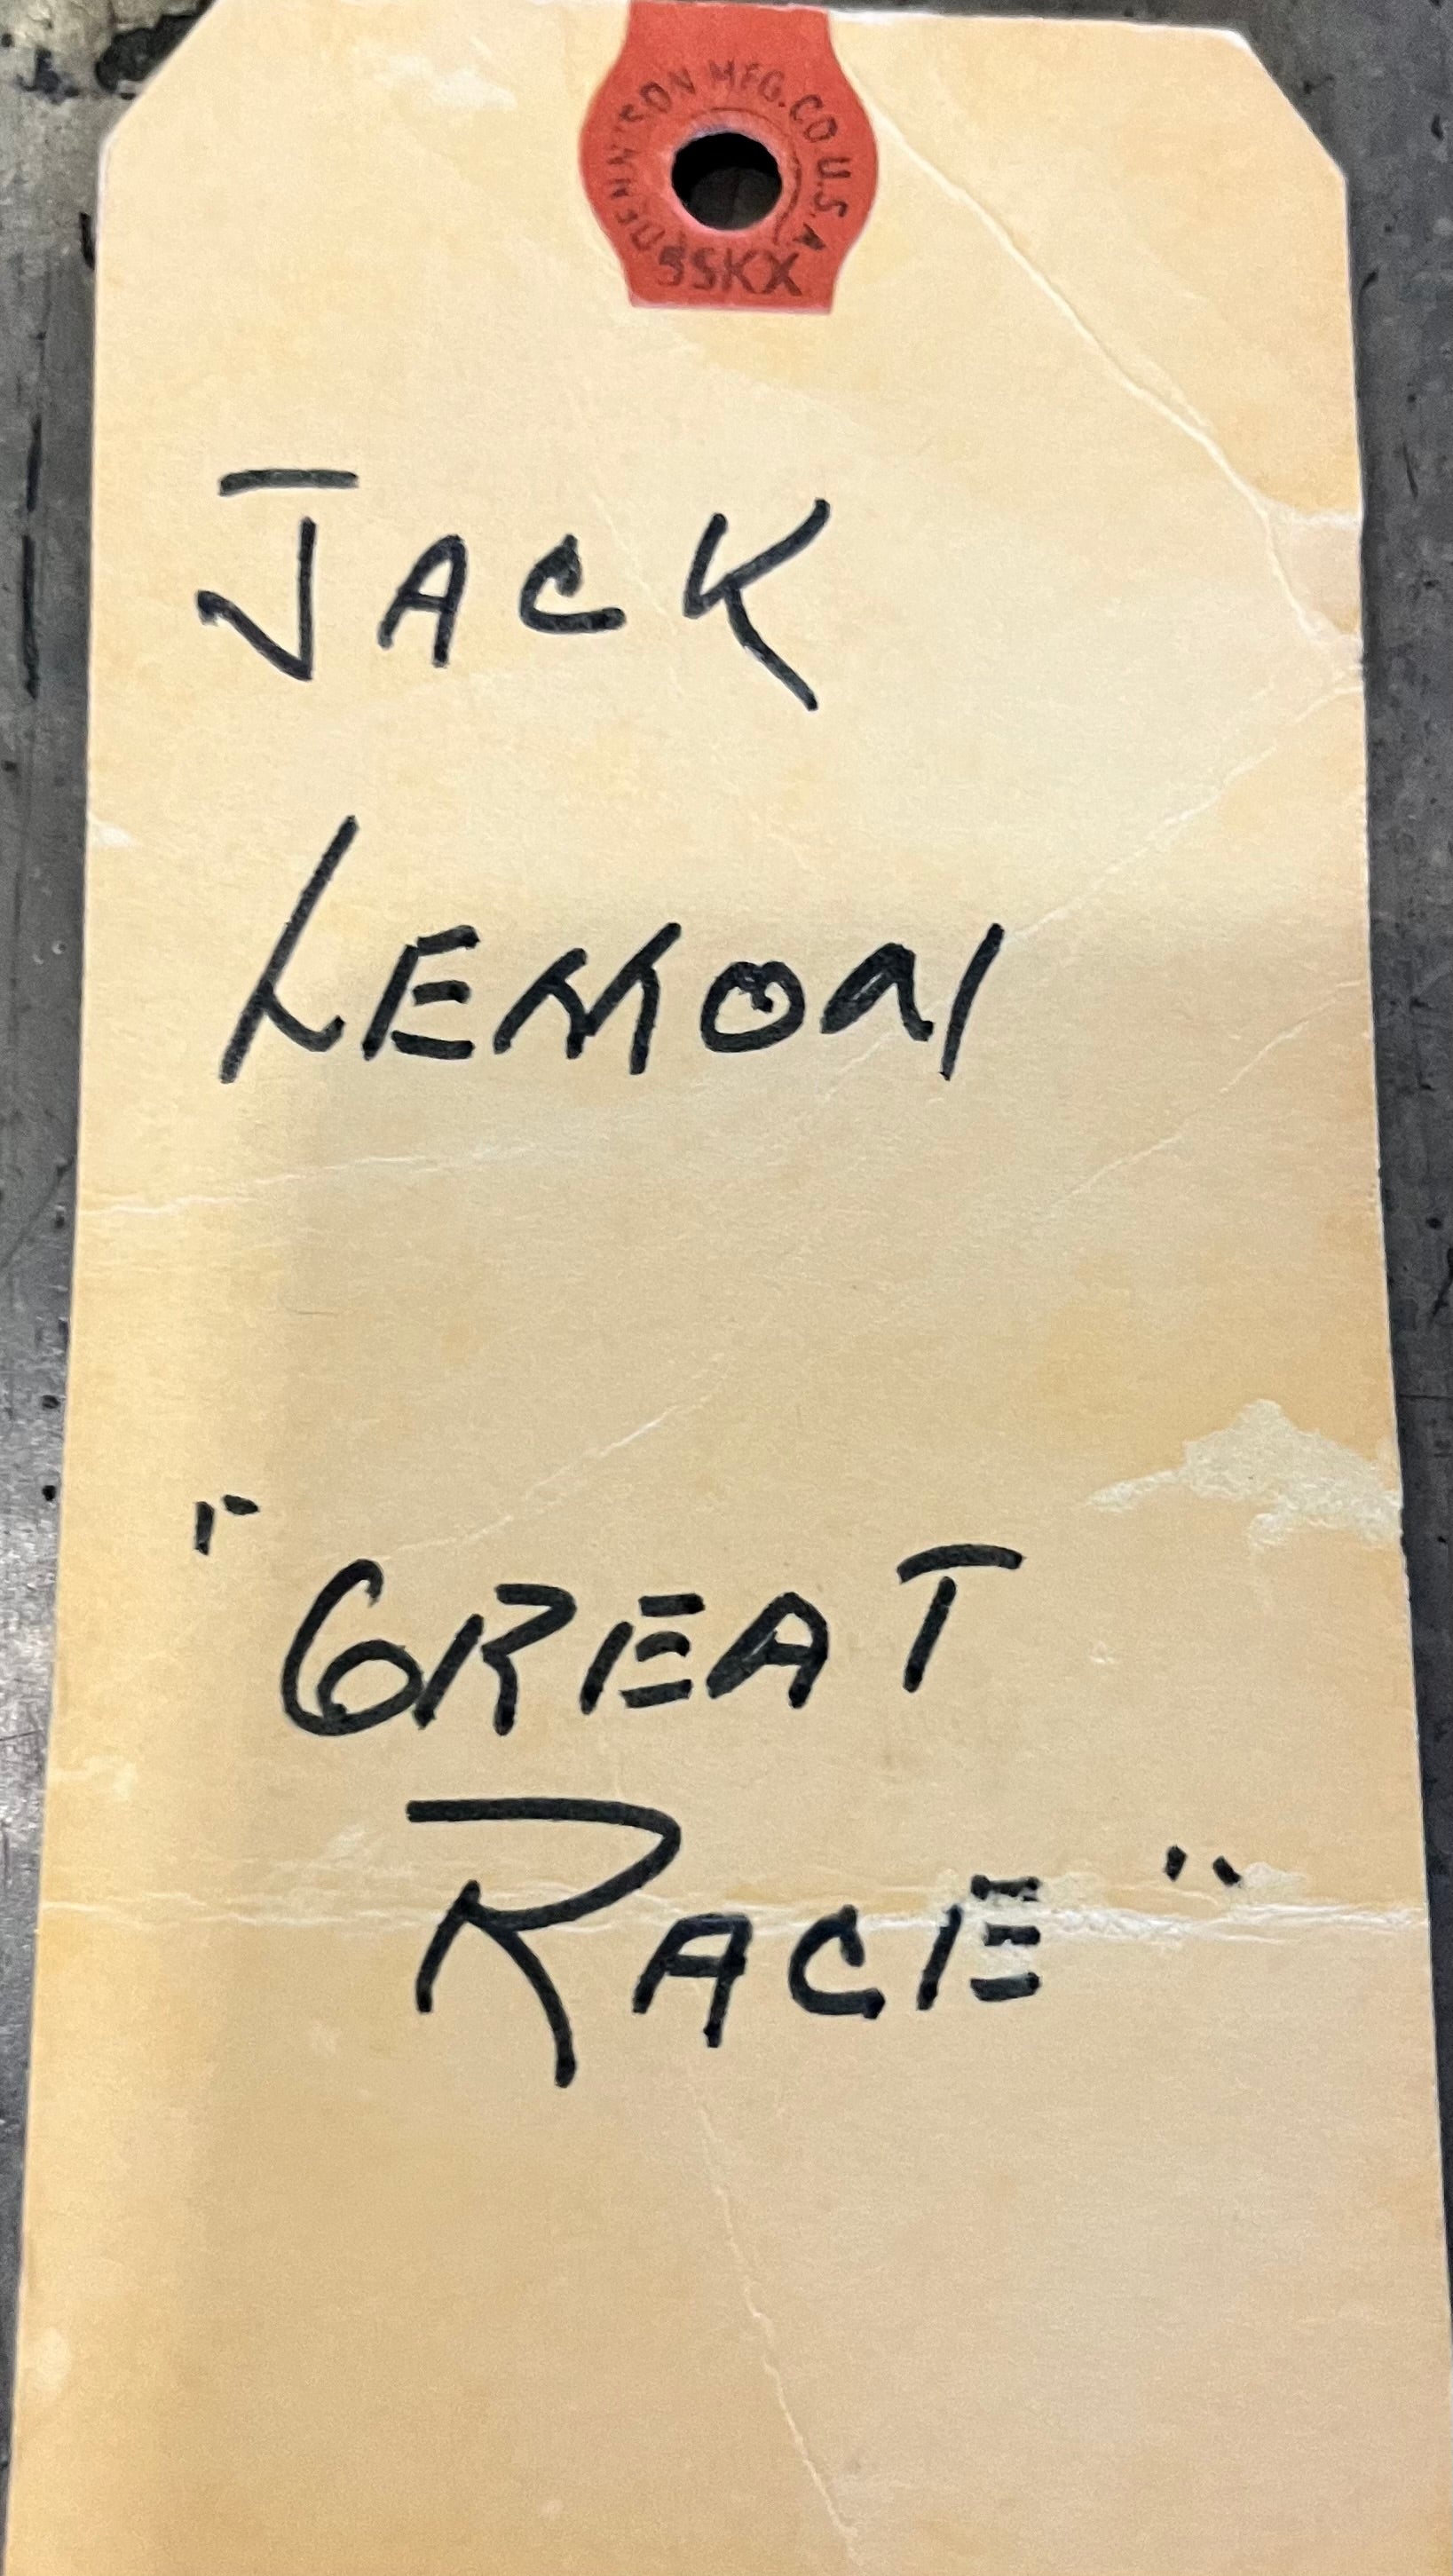 DENNISON MFG. CO U.S.A
5SKX
JACK
LEMON
"GREAT
RACE"